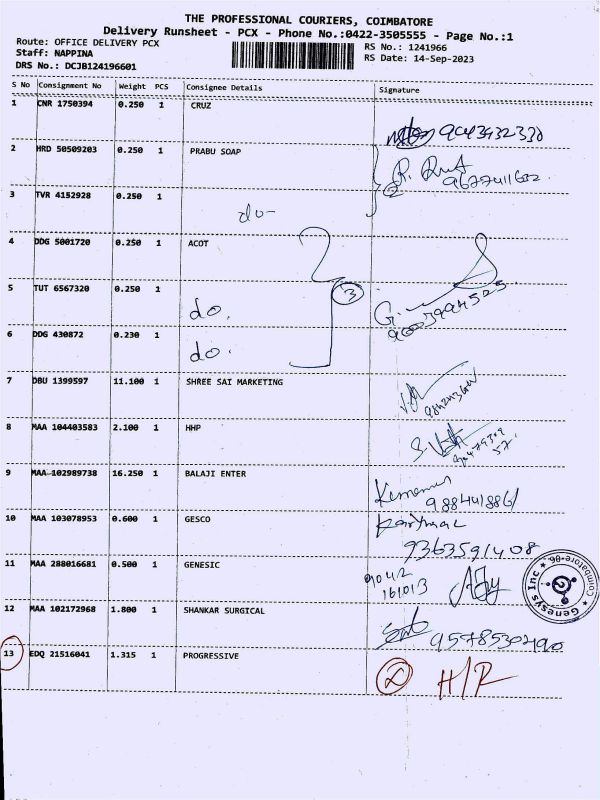 THE PROFESSIONAL COURIERS, COIMBATORE
Delivery Runsheet - PCX - Phone No.:0422-3505555 - Page No.:1
Route: OFFICE DELIVERY PCX
RS No.: 1241966
Staff: NAPPINA
RS Date: 14-Sep-2023
DRS No.: DCJB124196601
S No Consignment No Weight PCS Consignee Details Signature
1 CNR 1750394 0.250 1 CRUZ
2 HRD 50509203 0.250 1 PRABU SOAP
3 TVR 4152928 0.250 1
do-
4 DDG 5001720 0.250 1 ACOT
5 TUT 6567320 0.250 1
do.
3
6 DDG 430872 0.230 1
do.
7 DBU 1399597 11.100 1 SHREE SAI MARKETING
8 MAA 104403583 2.100 1 HHP
9 MAA 102989738 16.250 1 BALAJI ENTER
9884418861
10 MAA 103078953 0.600 1 GESCO
9363591408
11 MAA 288016681 0.500 1 GENESIC
90412
161013
Genesys Inc
Coimbatore-06
12 MAA 102172968 1.800 1 SHANKAR SURGICAL
9578530490
13 EDQ 21516041 1.315 1 PROGRESSIVE
H/R